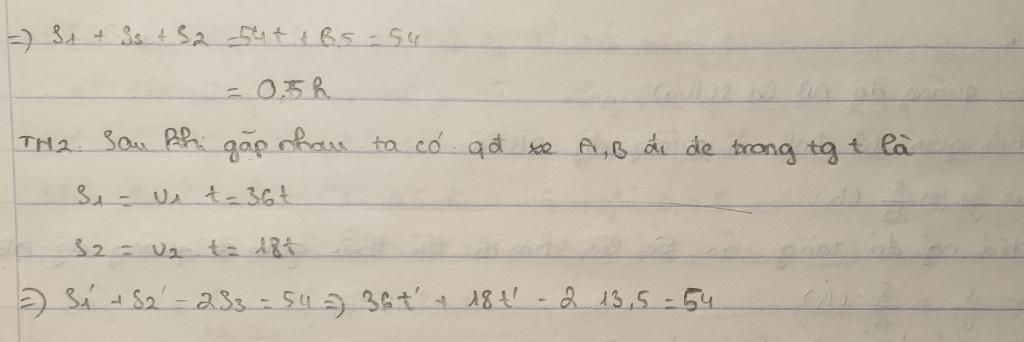 =) S1 + S3 + S2 = 54t + 13,5 = 54
= 0,75h
TH2. Sau khi gặp nhau ta có qđ xe A, B đi dc trong tg t là
S1 = v1 t = 36t
S2 = v2 t = 18t
=) S1' + S2' - 2S3 = 54 =) 36t' + 18t' - 2 13,5 = 54